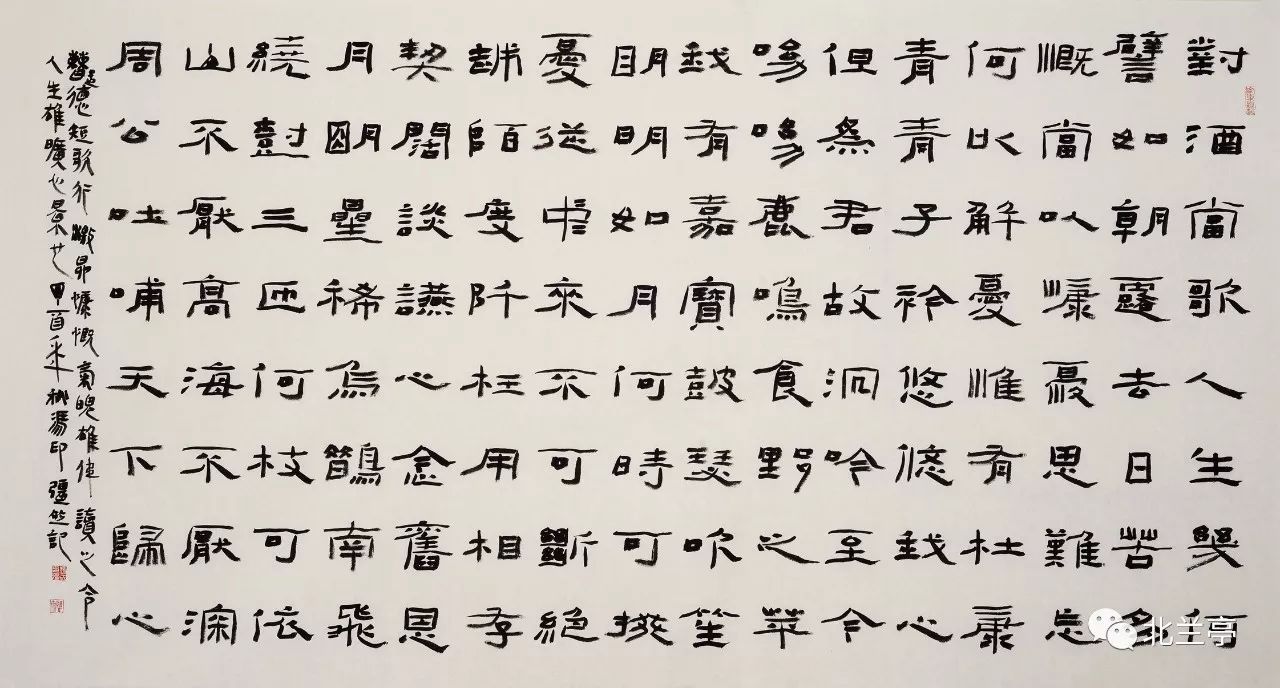 對酒當歌人生幾何
譬如朝露去日苦多
慨當以慷憂思難忘
何以解憂惟有杜康
青青子衿悠悠我心
但為君故沉吟至今
呦呦鹿鳴食野之苹
我有嘉賓鼓瑟吹笙
明明如月何時可掇
憂從中來不可斷絕
越陌度阡枉用相存
契闊談讌心念舊恩
月明星稀烏鵲南飛
繞樹三匝何枝可依
山不厭高海不厭深
周公吐哺天下歸心
曹孟德短歌行激昂慷慨氣魄雄偉讀之令
人生雄曠心景也甲年秋馮印彊並記
北兰亭